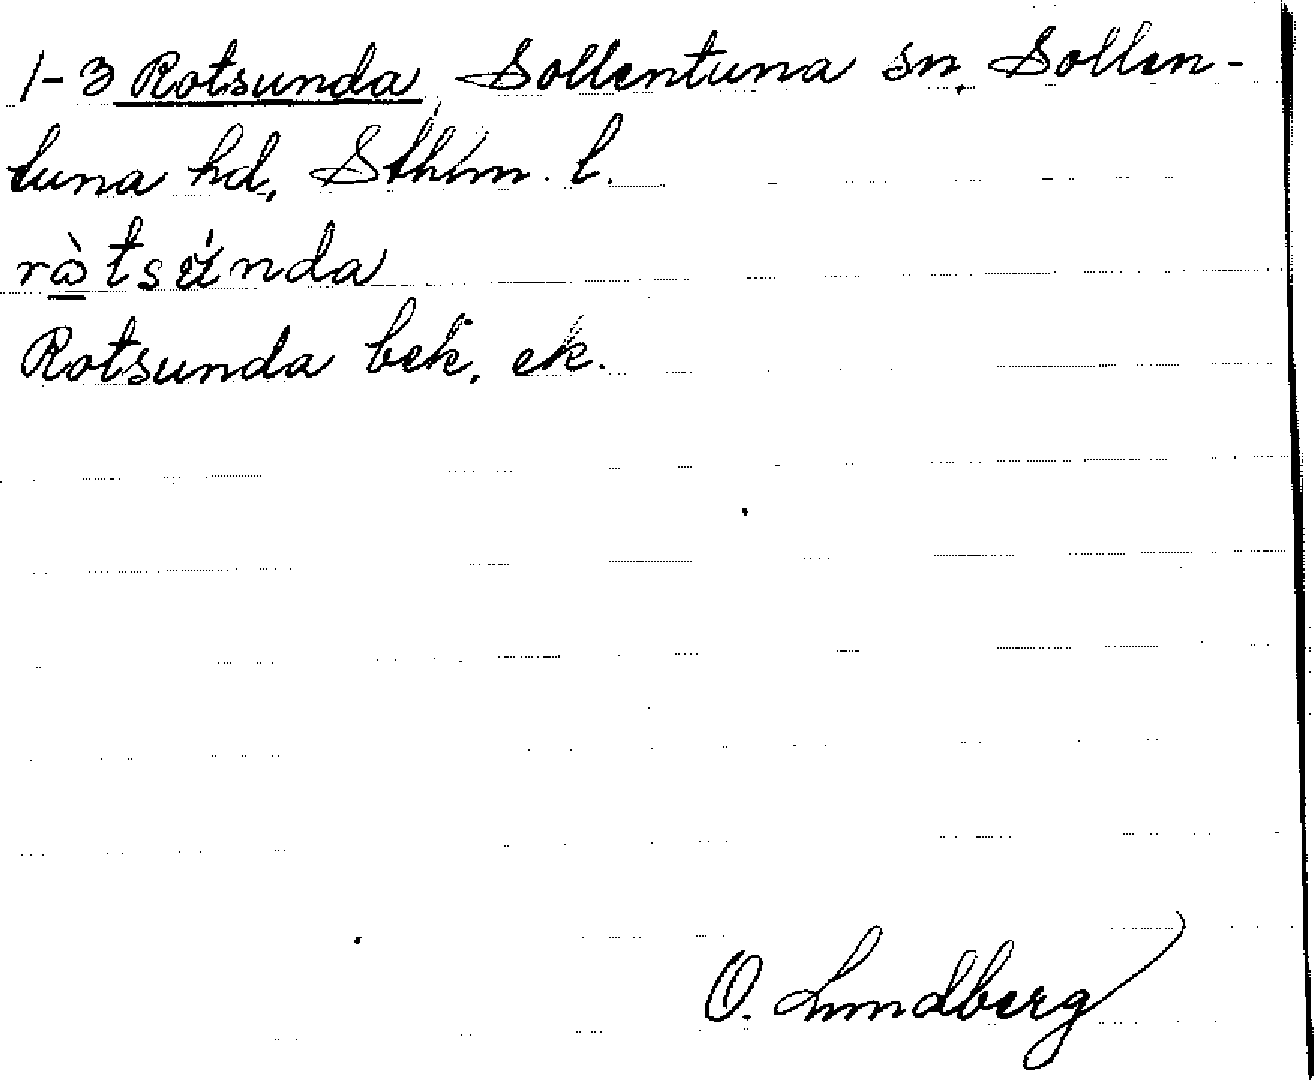 1-3 Rotsunda, Sollentuna sn, Sollen-
tuna hd, Sthlm. l.
rὼ̲tsúnda
Rotsunda bek. ek.
O. Lundberg